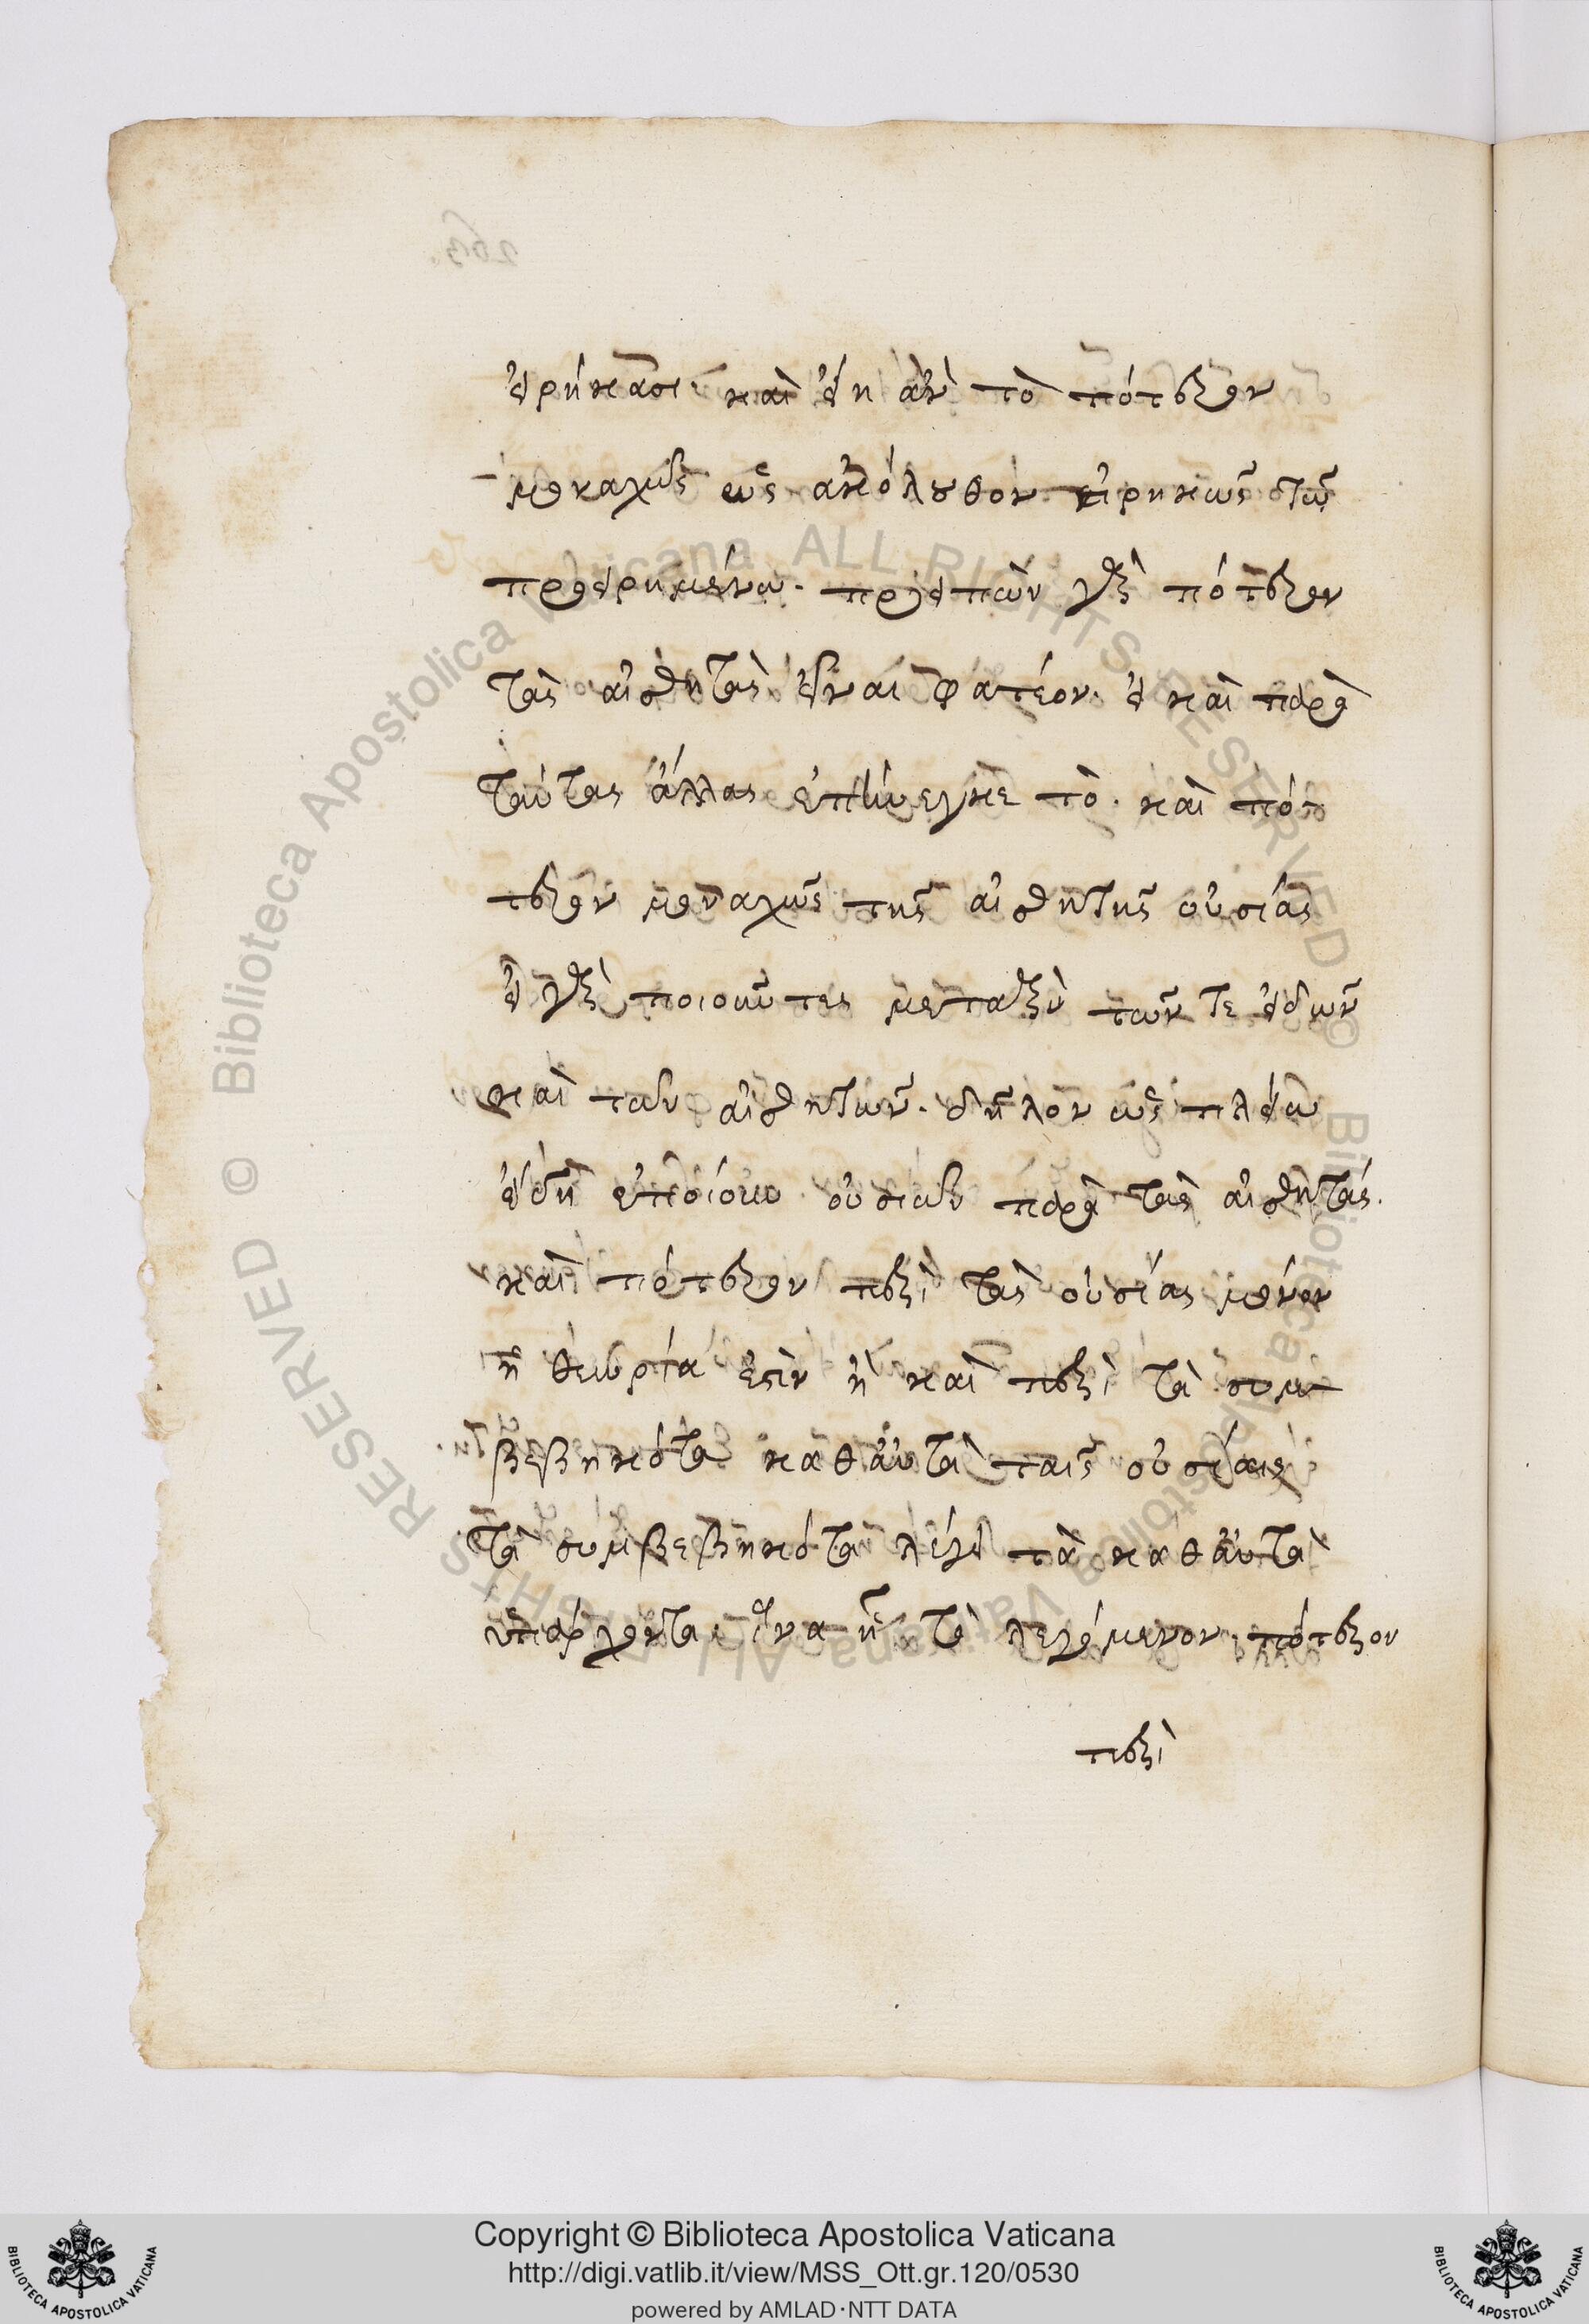 εἰρήκασι καὶ εἴη ἂν τὸ πότερον
μοναχῶς ὡς ἀκόλουθον εἰρηκὼς τῶ
προειρημένω. προειπὼν γὰρ πότερον
τὰς αἰσθητὰς εἶναι φατέον. εἰ καὶ παρὰ
ταύτας ἄλλας ἐπήνεγκε τὸ. καὶ πότ
τερον μοναχῶς τῆς αἰσθητῆς οὐσίας
εἰ γὰρ ποιοῦντες μεταξὺ τῶν τε εἰδῶν
καὶ τῶν αἰσθητῶν. δῆλον ὡς πλείω
εἴδη ἐποίουν οὐσιῶν παρὰ τὰς αἰσθητάς.
καὶ πότερον περὶ τὰς οὐσίας μόνον
ἡ θεωρία ἐστὶν ἢ καὶ περὶ τὰ συμ
βεβηκότα καθ αὑτὰ ταῖς οὐσίαις
τὰ συμβεβηκότα λέγει τὰ καθ αὑτὰ
ὑπάρχοντα, ἵνα ἦ τὸ λεγόμενον. πότερον
περὶ
Copyright © Biblioteca Apostolica Vaticana
http://digi.vatlib.it/view/MSS_Ott.gr.120/0530
powered by AMLAD·NTT DATA
BIBLIOTECA APOSTOLICA VATICANA
BIBLIOTECA APOSTOLICA VATICANA
© Biblioteca Apostolica Vaticana ALL RIGHTS RESERVED
© Biblioteca Apostolica Vaticana ALL RIGHTS RESERVED